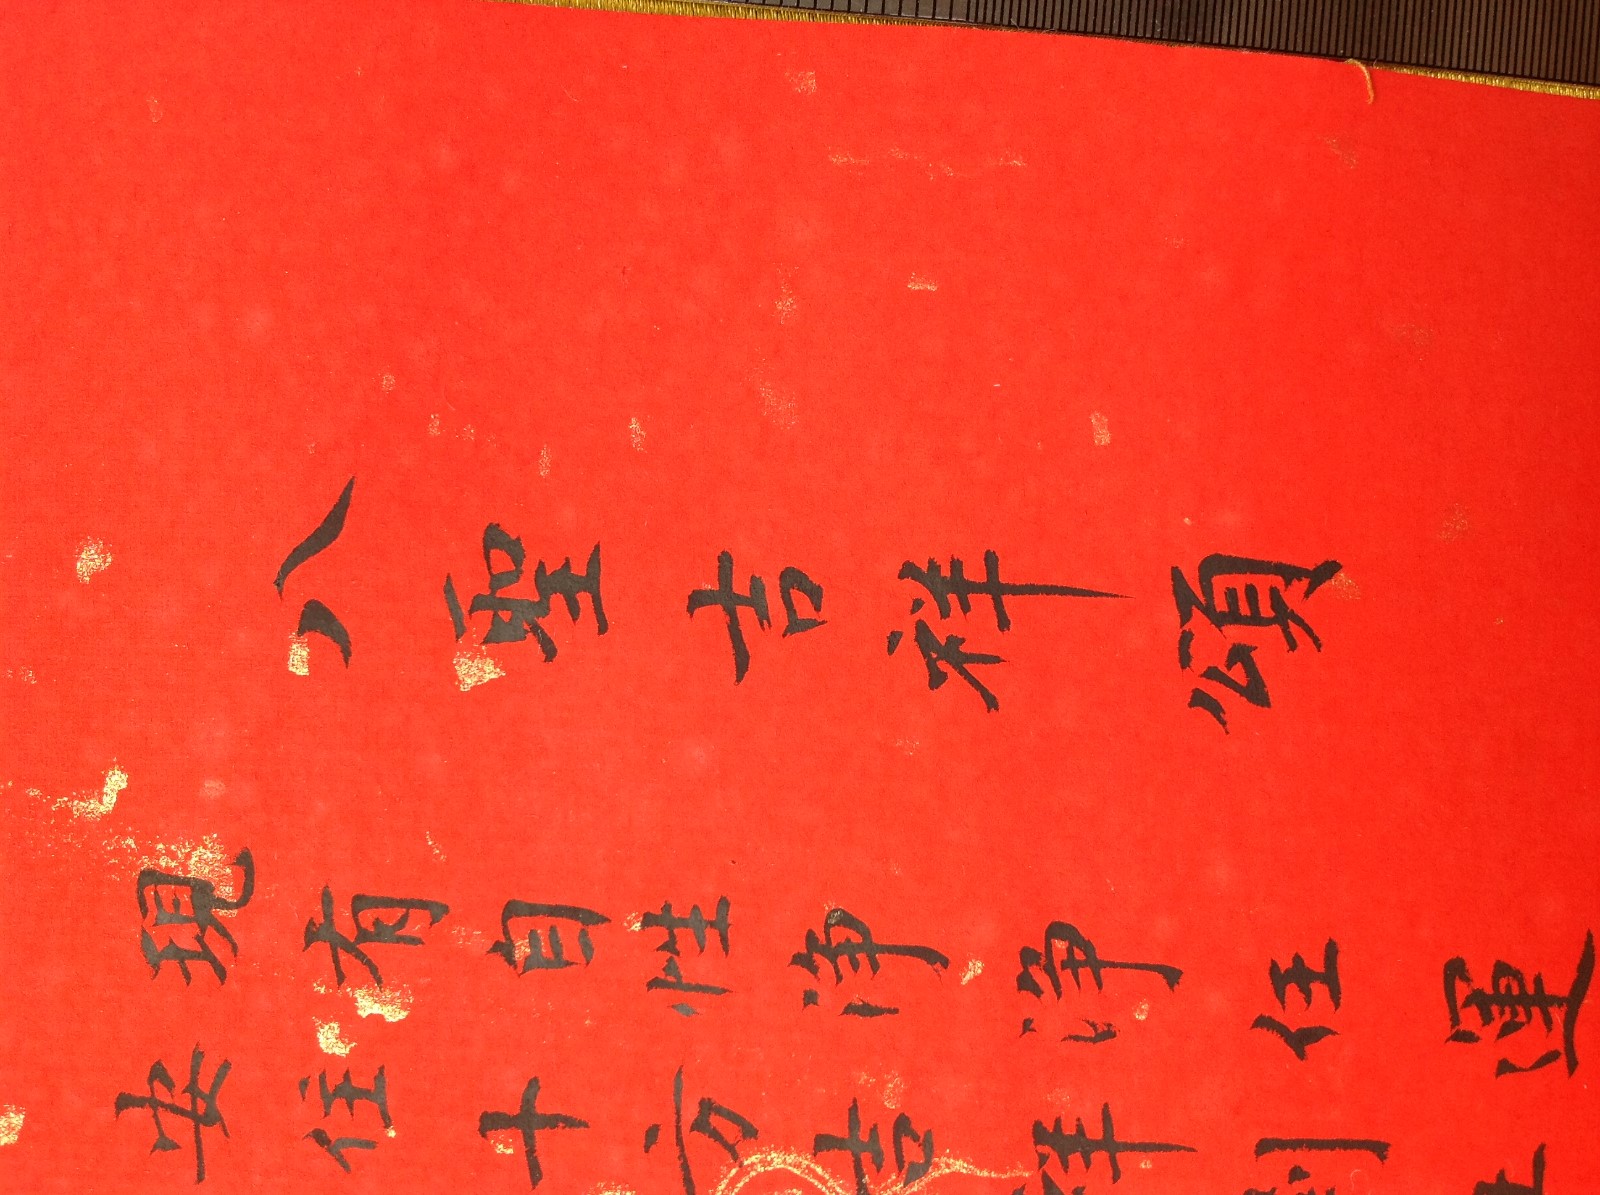 八聖吉祥頌
現有自性清淨任運
安住十方吉祥